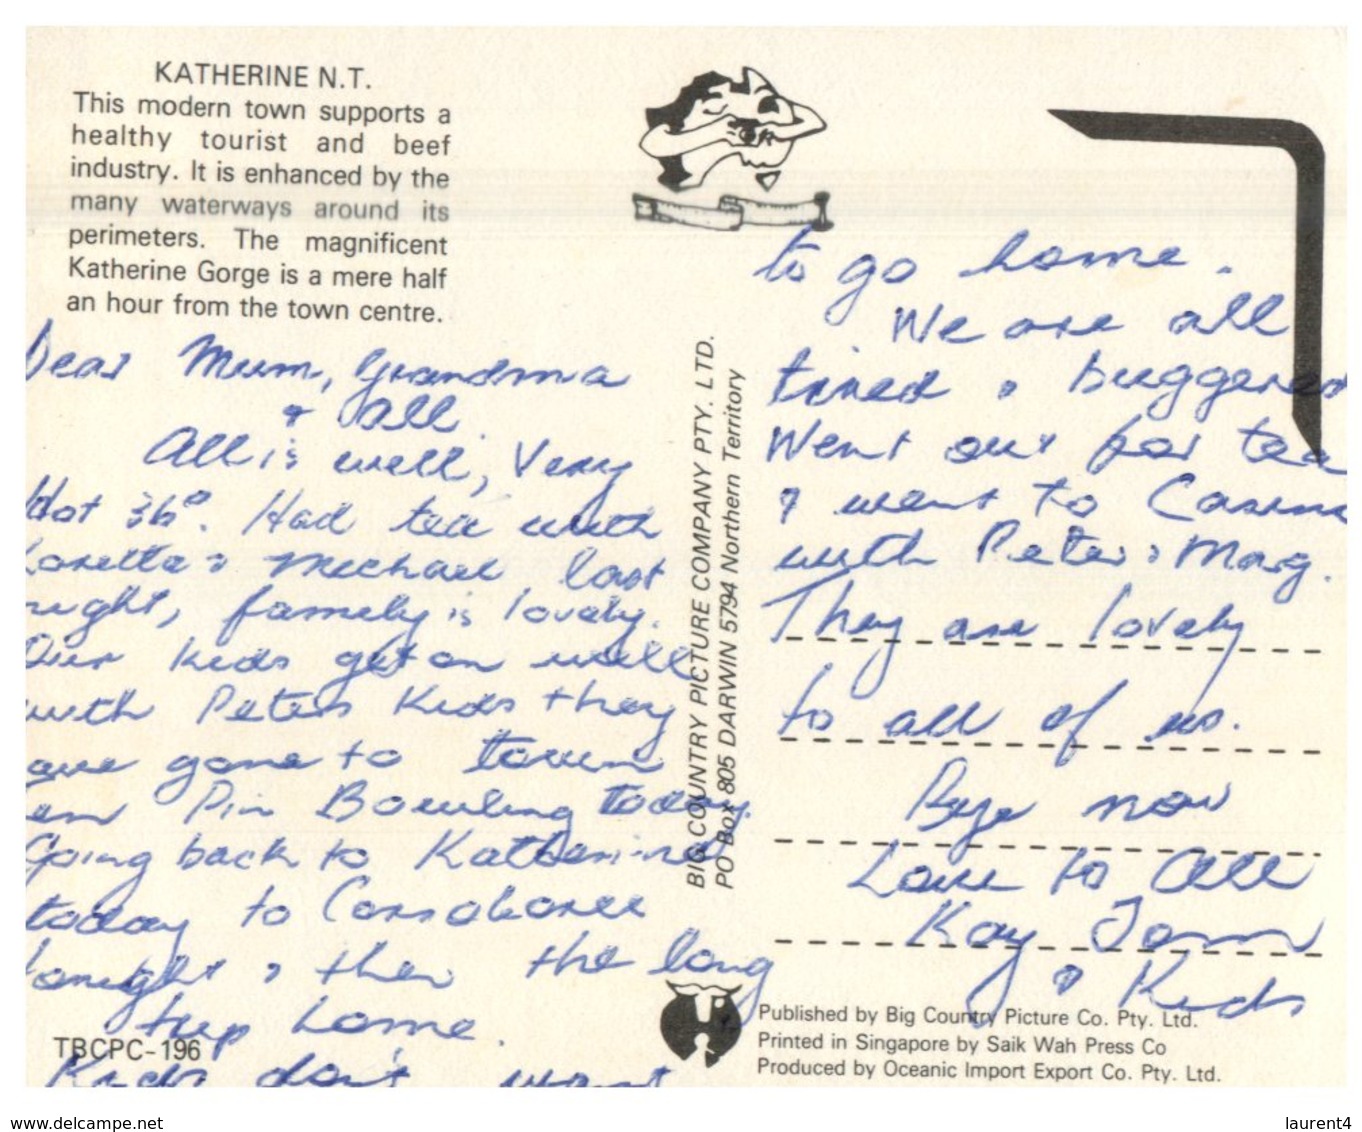 KATHERINE N.T.
This modern town supports a
healthy tourist and beef
industry. It is enhanced by the
many waterways around its
perimeters. The magnificent
Katherine Gorge is a mere half
an hour from the town centre.
Dear Mum, Grandma
& All.
All is well, Very
Hot 36°. Had tea with
Loretta & Michael last
night, family is lovely.
Our kids get on well
with Peters Kids they
are gone to town
en Pin Bowling today.
Going back to Katherine
today to Corroboree
tonight & then the long
trip home.
Kids don't want
to go home.
We are all
tired & buggered
Went out for tea
& went to Casino
with Peter & Marg.
They are lovely
to all of us.
Bye now
Love to All
Kay Tom
& Kids
BIG COUNTRY PICTURE COMPANY PTY. LTD.
PO Box 805 DARWIN 5794 Northern Territory
TBCPC-196
Published by Big Country Picture Co. Pty. Ltd.
Printed in Singapore by Saik Wah Press Co
Produced by Oceanic Import Export Co. Pty. Ltd.
www.delcampe.net
laurent4